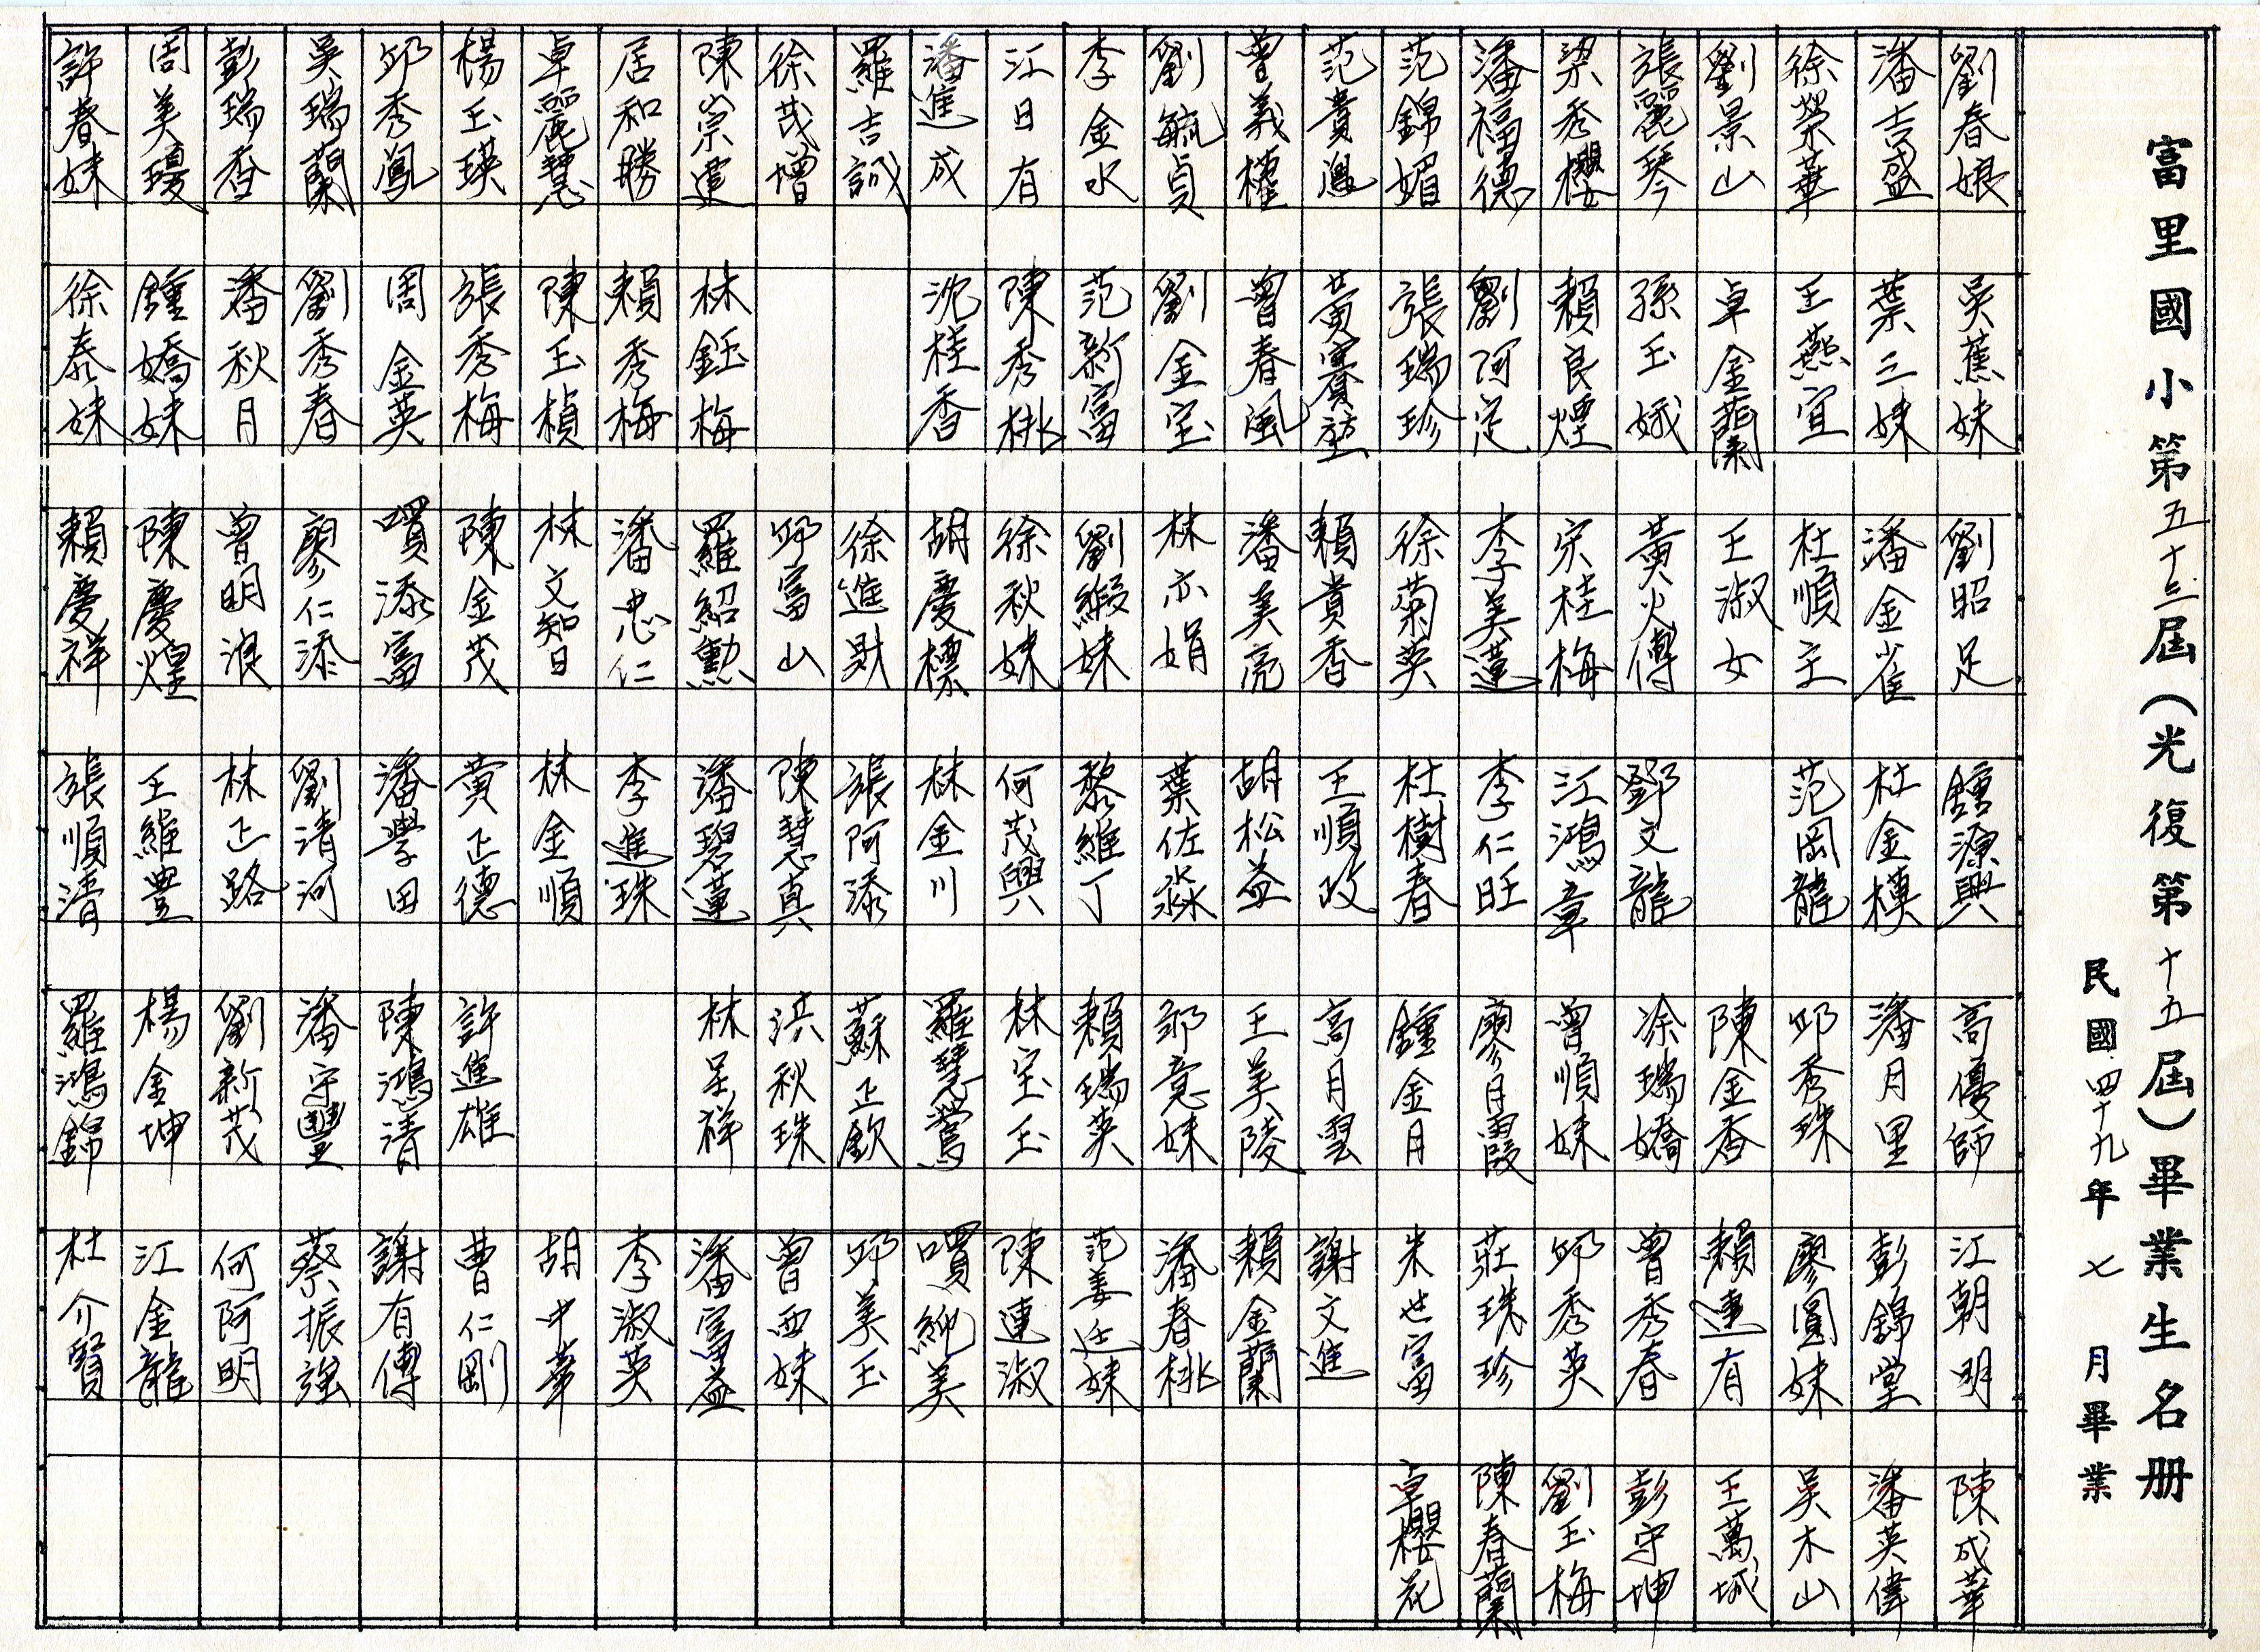 富里國小第五十三屆(光復第十五屆)畢業生名册
民國四十九年七月畢業
劉春娘
潘吉盛
徐榮華
劉景山
張麗琴
梁秀櫻
潘福德
范錦媚
范貴
曾義權
劉毓貞
李金水
江日有
潘進成
羅吉誠
徐茂增
陳崇
居和勝
卓麗慧
楊玉瑛
邱秀鳳
吳瑞蘭
彭瑞香
周美瓊
許春妹
吳蕉妹
葉三妹
王燕宜
卓金蘭
孫玉娥
賴良煙
劉阿定
張瑞珍
黃
曾春鳳
劉金宝
范新富
陳秀桃
沈桂香
林鈺梅
賴秀梅
陳玉楨
張秀梅
周金英
劉秀春
潘秋月
鍾嬌妹
徐泰妹
劉昭足
潘金雀
杜順主
王淑女
黃火傳
宋桂梅
李美蓮
徐菊英
賴貴香
潘美亮
林亦娟
劉緞妹
徐秋妹
胡慶標
徐進財
邱富山
羅紹勳
潘忠仁
林文智
陳金茂
嘪添富
廖仁添
曾明浪
陳慶煌
賴慶祥
鍾源興
杜金模
范岡龍
鄧文龍
江鴻章
李仁旺
杜樹春
王順政
胡松益
葉佐淼
黎維丁
何茂興
林金川
張阿添
陳慧真
潘碧蓮
李進珠
林金順
黃正德
潘學田
劉清河
林正路
王維豊
張順清
高優師
潘月里
邱秀珠
陳金香
涂瑞嬌
曾順妹
廖月霞
鍾金月
高月雲
王美陵
鄒意妹
賴瑞英
林宝玉
羅慧鶯
蘇正欽
洪秋珠
林呈祥
許進雄
陳鴻清
潘守豐
劉新茂
楊金坤
羅鴻錦
江朝明
彭錦堂
廖圓妹
賴連有
曾秀春
邱秀英
莊珠珍
朱世富
謝文進
賴金蘭
潘春桃
范姜近妹
陳連淑
嘪純美
邱美玉
曾西妹
潘富益
李淑英
胡中華
曹仁剛
謝有傳
蔡振強
何阿明
江金龍
杜介賢
陳成華
潘英偉
吳木山
王萬城
彭守坤
劉玉梅
陳春蘭
卓櫻花